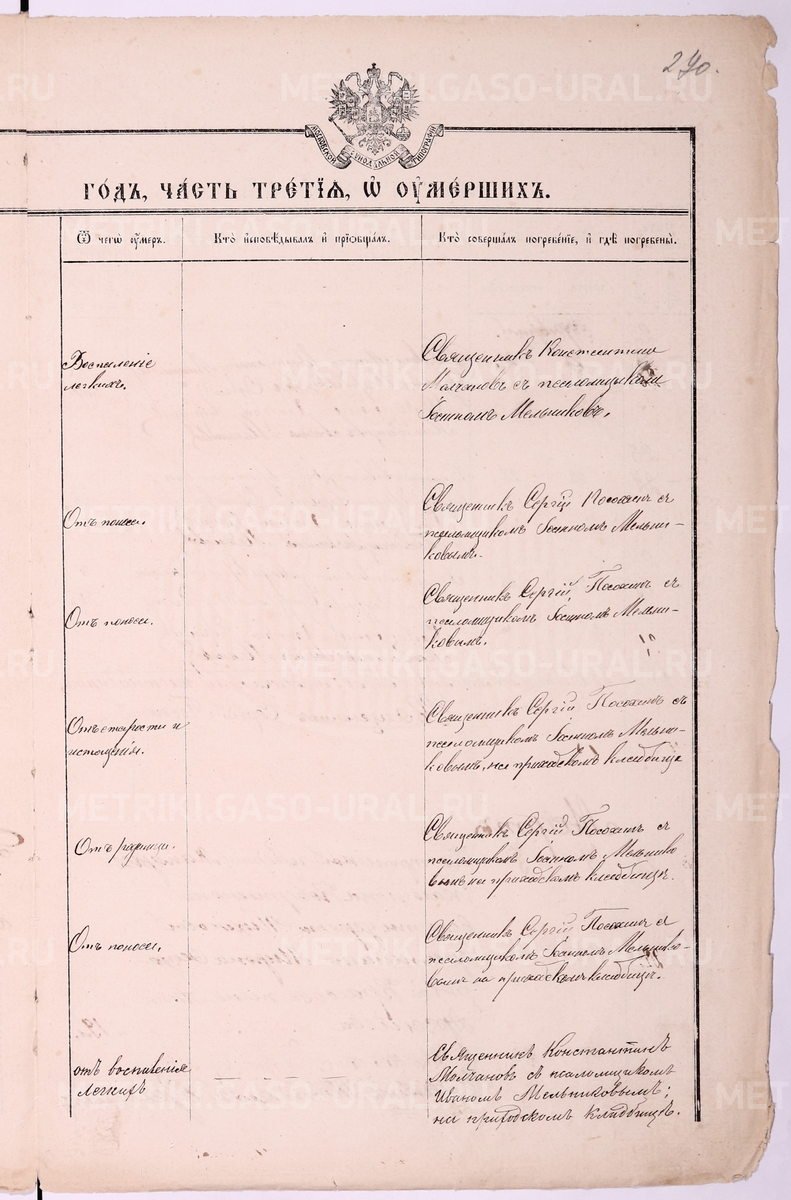 270.
МОСКОВСКОЙ СѴНОДАЛЬНОЙ ТИПОГРАФІИ
ГОДЪ, ЧАСТЬ ТРЕТІЯ, Ѡ ОУМЕРШИХЪ.
Ѿ чегѡ оумеръ.
Кто исповѣдывалъ и пріобщалъ.
Кто совершалъ погребеніе, и гдѣ погребены.
Воспаленіе
легкихъ.
Священникъ Константинъ
Молчановъ съ псаломщикомъ
Іоанномъ Мельниковъ.
Отъ поноса.
Священникъ Сергій Посохинъ съ
псаломщикомъ Іоанномъ Мельни-
ковымъ.
Отъ поноса.
Священникъ Сергій Посохинъ съ
псаломщикомъ Іоанномъ Мельни-
ковымъ.
Отъ старости и
истощенія.
Священникъ Сергій Посохинъ съ
псаломщикомъ Іоанномъ Мельни-
ковымъ, на приходскомъ кладбище
Отъ родимца.
Священникъ Сергій Посохинъ съ
псаломщикомъ Іоанномъ Мельнико
вымъ на приходскомъ кладбищѣ.
Отъ поноса.
Священникъ Сергій Посохинъ съ
псаломщикомъ Іоанномъ Мельнико-
вымъ на приходскомъ кладбищѣ.
отъ воспаленія
легкихъ
Священникъ Константинъ
Молчановъ съ псаломщикомъ
Иваномъ Мельниковымъ;
на приходскомъ кладбищѣ.
METRIKI.GASO-URAL.RU